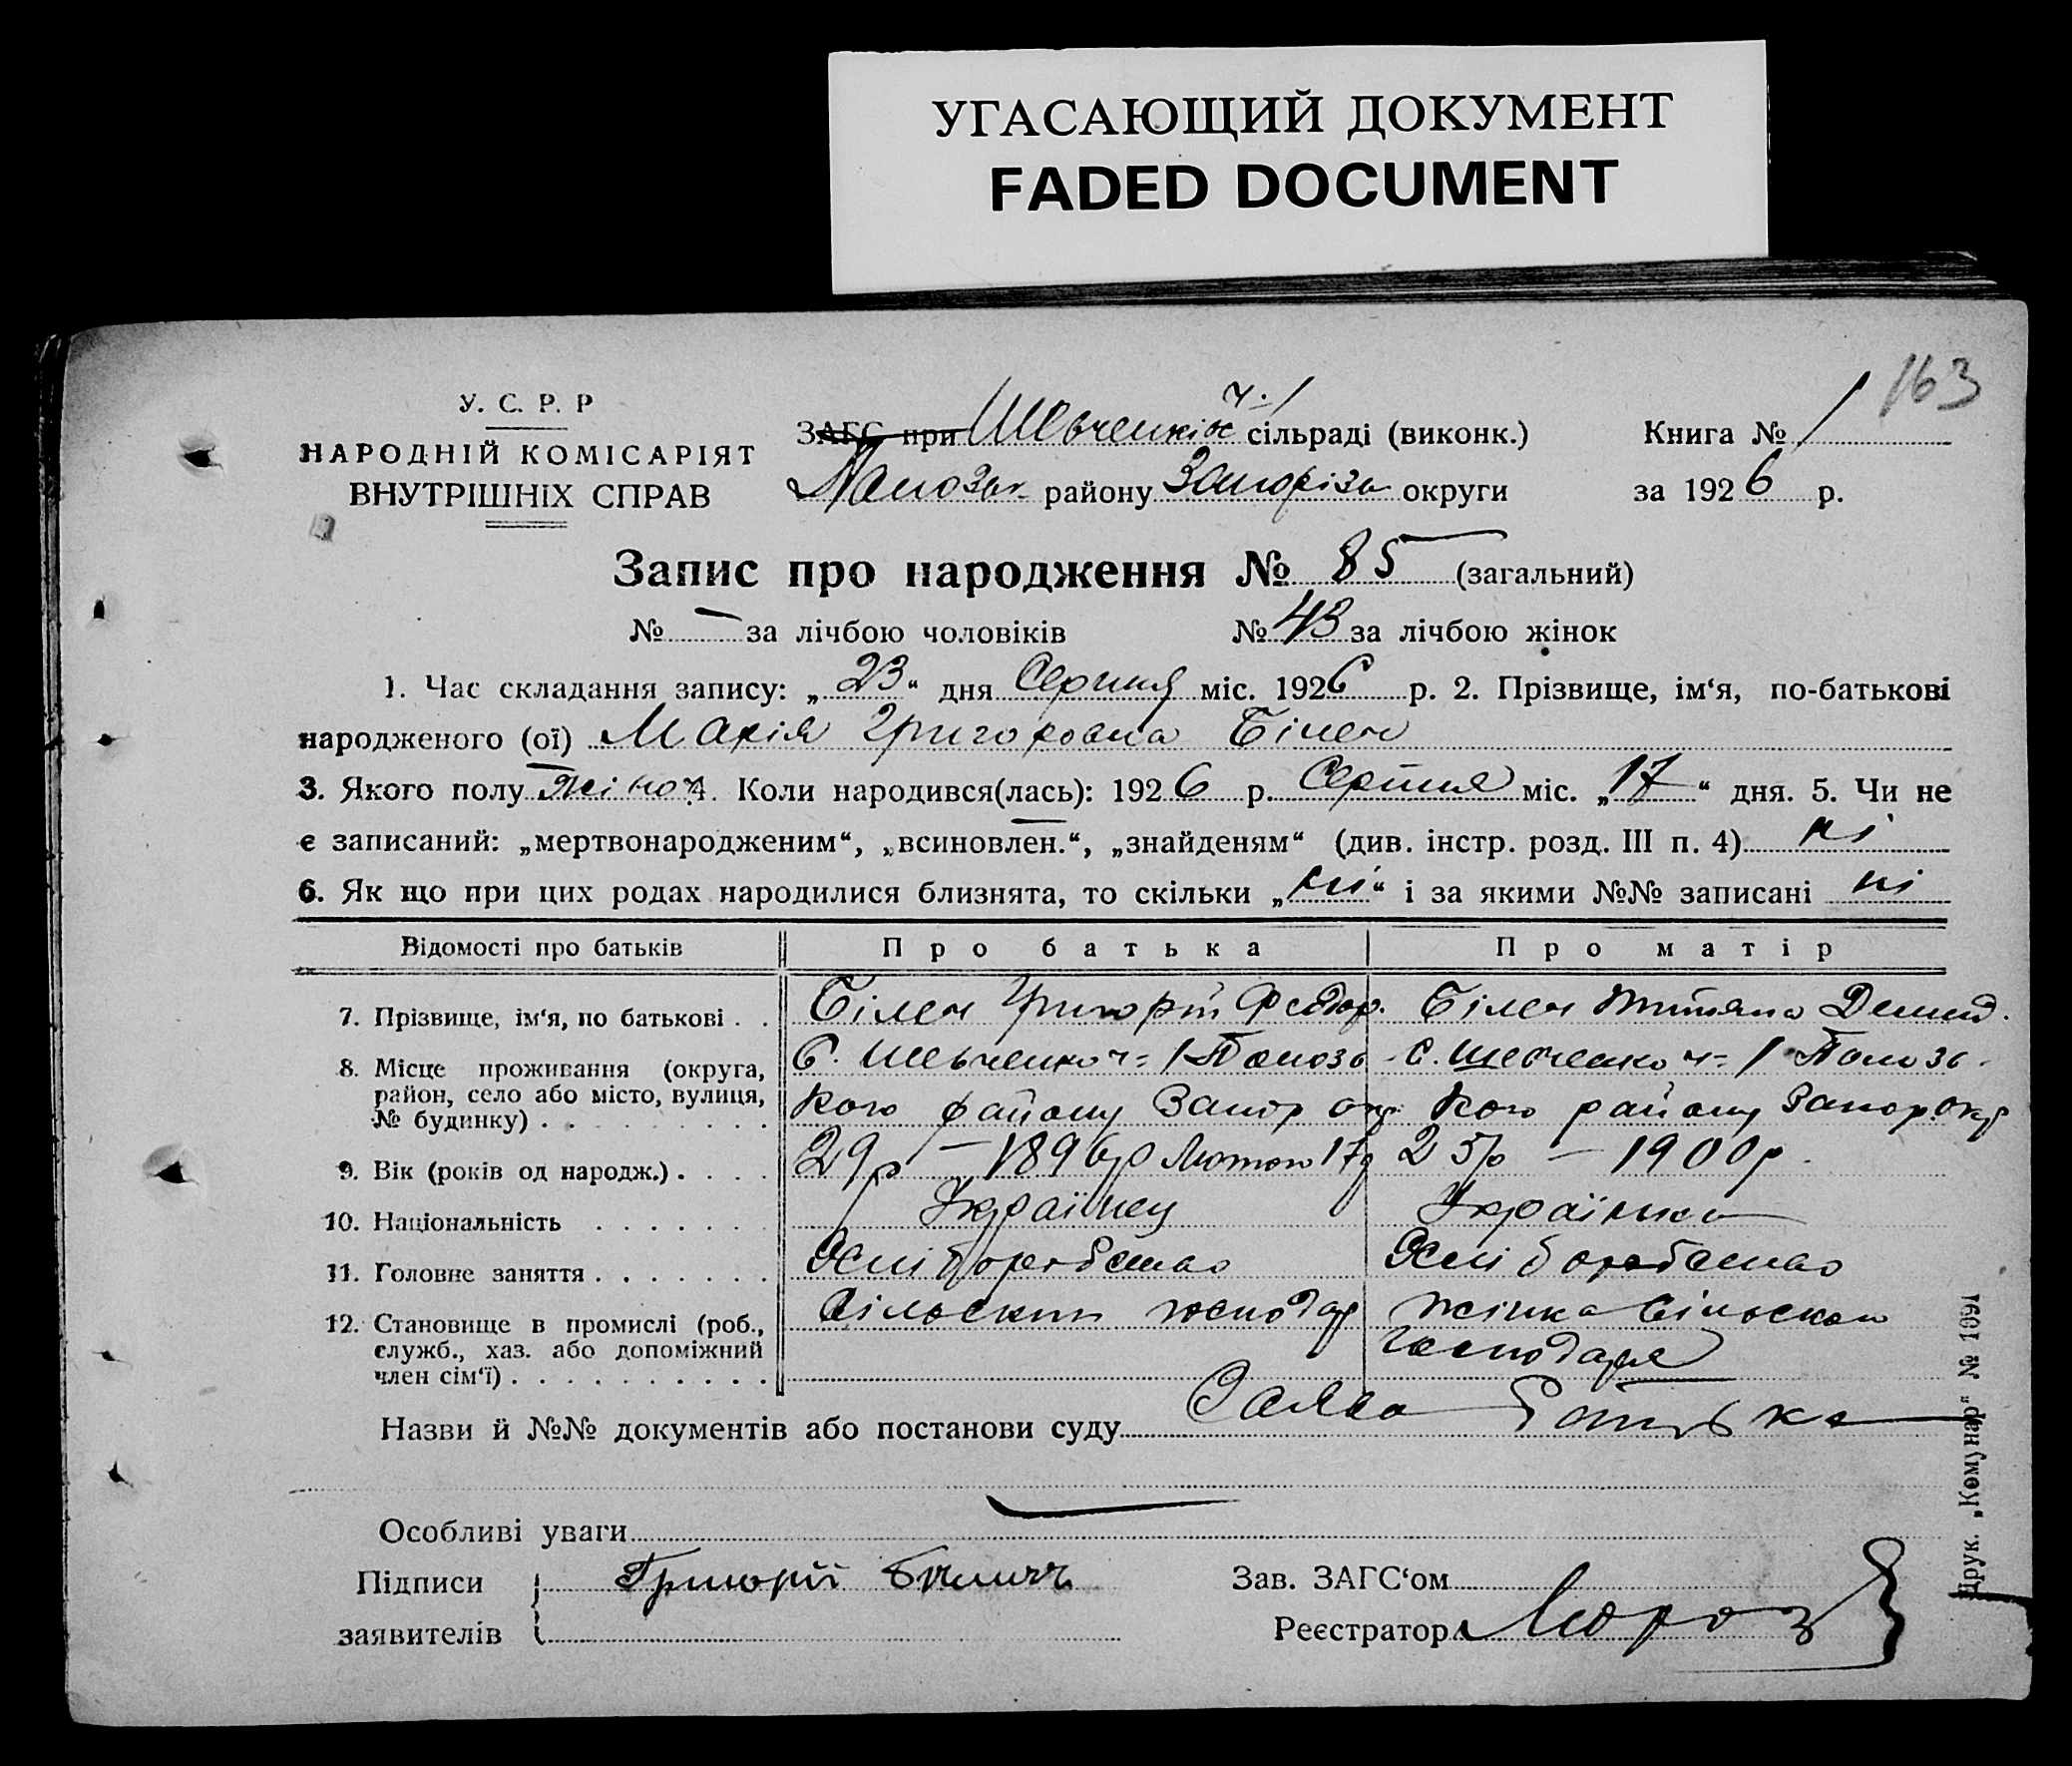 УГАСАЮЩИЙ ДОКУМЕНТ
FADED DOCUMENT
163
У. С. Р. Р
НАРОДНІЙ КОМІСАРІЯТ
ВНУТРІШНІХ СПРАВ
ч. 1
ЗАГС при Шевченків сільраді (виконк.)
Книга № 1
району Запорізь округи
за 1926 р.
Запис про народження № 85 (загальний)
№ — за лічбою чоловіків № 43 за лічбою жінок
1. Час складання запису: „23“ дня Серпня міс. 1926 р. 2. Прізвище, ім‘я, по-батькові
народженого (ої) Марія Григоровна Білеч
3. Якого полу жіноч 4. Коли народився(лась): 1926 р. Серпня міс. „17“ дня. 5. Чи не
є записаний: „мертвонародженим“, „всиновлен.“, „знайденям“ (див. інстр. розд. III п. 4) ні
6. Як що при цих родах народилися близнята, то скільки „ні“ і за якими №№ записані ні
Відомості про батьків Про батька Про матір
7. Прізвище, ім‘я, по батькові . . Білеч Григорій Федор. Білеч Титяна Демид.
8. Місце проживання (округа, район, село або місто, вулиця, № будинку) . . . С. Шевченко ч= 1 Пологзь С. Шевченко ч= 1
кого району Запор окр. кого району Запор. окр
9. Вік (років од народж.) . . . . 29р — 1896р Лютого 17д 25р — 1900р.
10. Національність . . . . . . Українец Українка
11. Головне заняття . . . . . . . Хліборобство Хліборобство
12. Становище в промислі (роб., служб., хаз. або допоміжний член сім‘ї) . . . Сільский господар жінка Сільского
господаря
Назви й №№ документів або постанови суду Заява батька
Особливі уваги
Підписи Григорій
заявителів
Зав. ЗАГС‘ом
Реєстратор Мороз
Друк. „Комунар“ № 1091